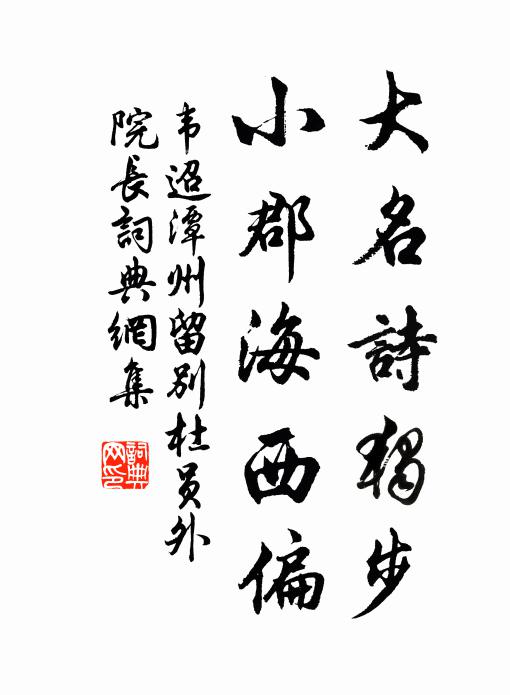 大名詩獨步
小郡海西偏
韦迢潭州留别杜员外
院長詞典網集
詞典
网印